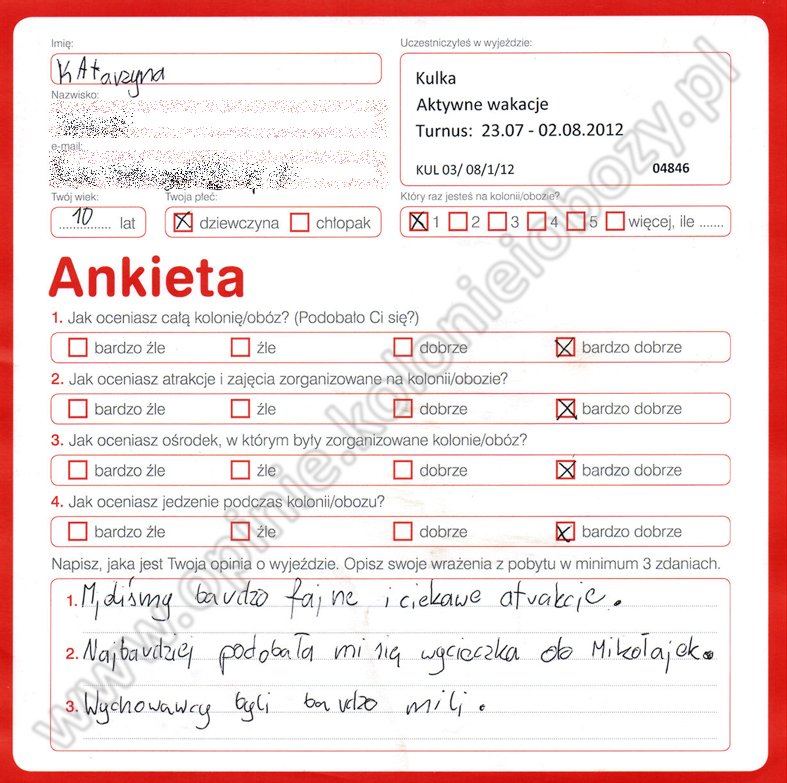 Imię:
KAtarzyna
Uczestniczyłeś w wyjeździe:
Kulka
Aktywne wakacje
Turnus: 23.07 - 02.08.2012
KUL 03/ 08/1/12 04846
Nazwisko:
e-mail:
Twój wiek:
10 lat
Twoja płeć:
dziewczyna chłopak
Który raz jesteś na kolonii/obozie?
1 2 3 4 5 więcej, ile .......
Ankieta
1. Jak oceniasz całą kolonię/obóz? (Podobało Ci się?)
bardzo źle źle dobrze bardzo dobrze
2. Jak oceniasz atrakcje i zajęcia zorganizowane na kolonii/obozie?
bardzo źle źle dobrze bardzo dobrze
3. Jak oceniasz ośrodek, w którym były zorganizowane kolonie/obóz?
bardzo źle źle dobrze bardzo dobrze
4. Jak oceniasz jedzenie podczas kolonii/obozu?
bardzo źle źle dobrze bardzo dobrze
Napisz, jaka jest Twoja opinia o wyjeździe. Opisz swoje wrażenia z pobytu w minimum 3 zdaniach.
1. bardzo fajne i ciekawe atrakcje.
2. Najbardziej podobała mi się wycieczka do Mikołajek.
3. Wychowawcy byli bardzo mili.
www.opinie.kolonieiobozy.pl